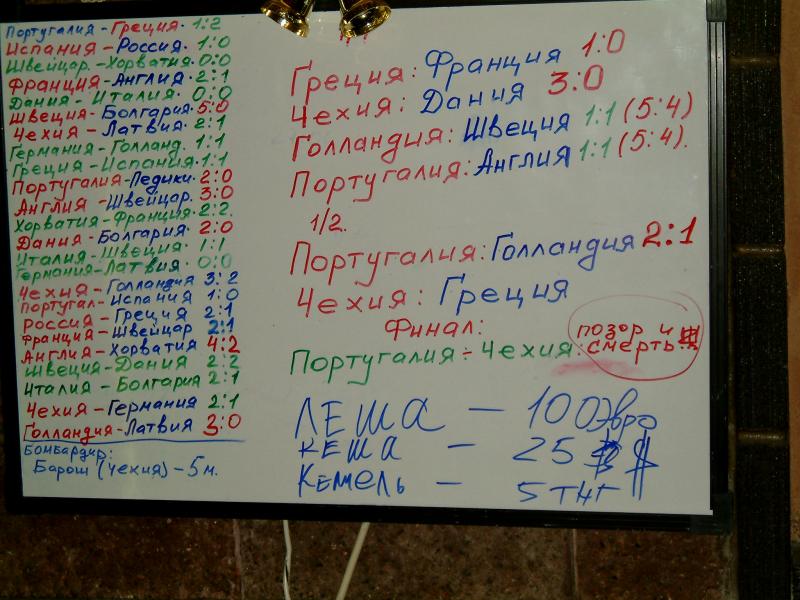 Португалия-Греция. 1:2
Испания-Россия. 1:0
Швейцар.-Хорватия. 0:0
Франция-Англия. 2:1
Дания-Италия. 0:0
Швеция-Болгария. 5:0
Чехия-Латвия. 2:1
Германия-Голланд. 1:1
Греция-Испания. 1:1
Португалия-Педики. 2:0
Англия-Швейцар. 3:0
Хорватия-Франция. 2:2.
Дания-Болгария. 2:0
Италия-Швеция. 1:1
Германия-Латвия. 0:0
Чехия-Голландия 3:2
Португал-Испания 1:0
Россия-Греция 2:1
Франция-Швейцар 2:1
Англия-Хорватия 4:2
Швеция-Дания 2:2
Италия-Болгария 2:1
Чехия-Германия 2:1
Голландия-Латвия 3:0
Бомбардир:
Барош (Чехия)-5м.
Греция: Франция 1:0
Чехия: Дания 3:0
Голландия: Швеция 1:1 (5:4)
Португалия: Англия 1:1 (5:4).
1/2.
Португалия: Голландия 2:1
Чехия: Греция
Финал:
Португалия-Чехия:
позор и
смерть
ЛЕША - 100Эвро
КЕША - 25 $
КЕМЕЛЬ - 5 тнг